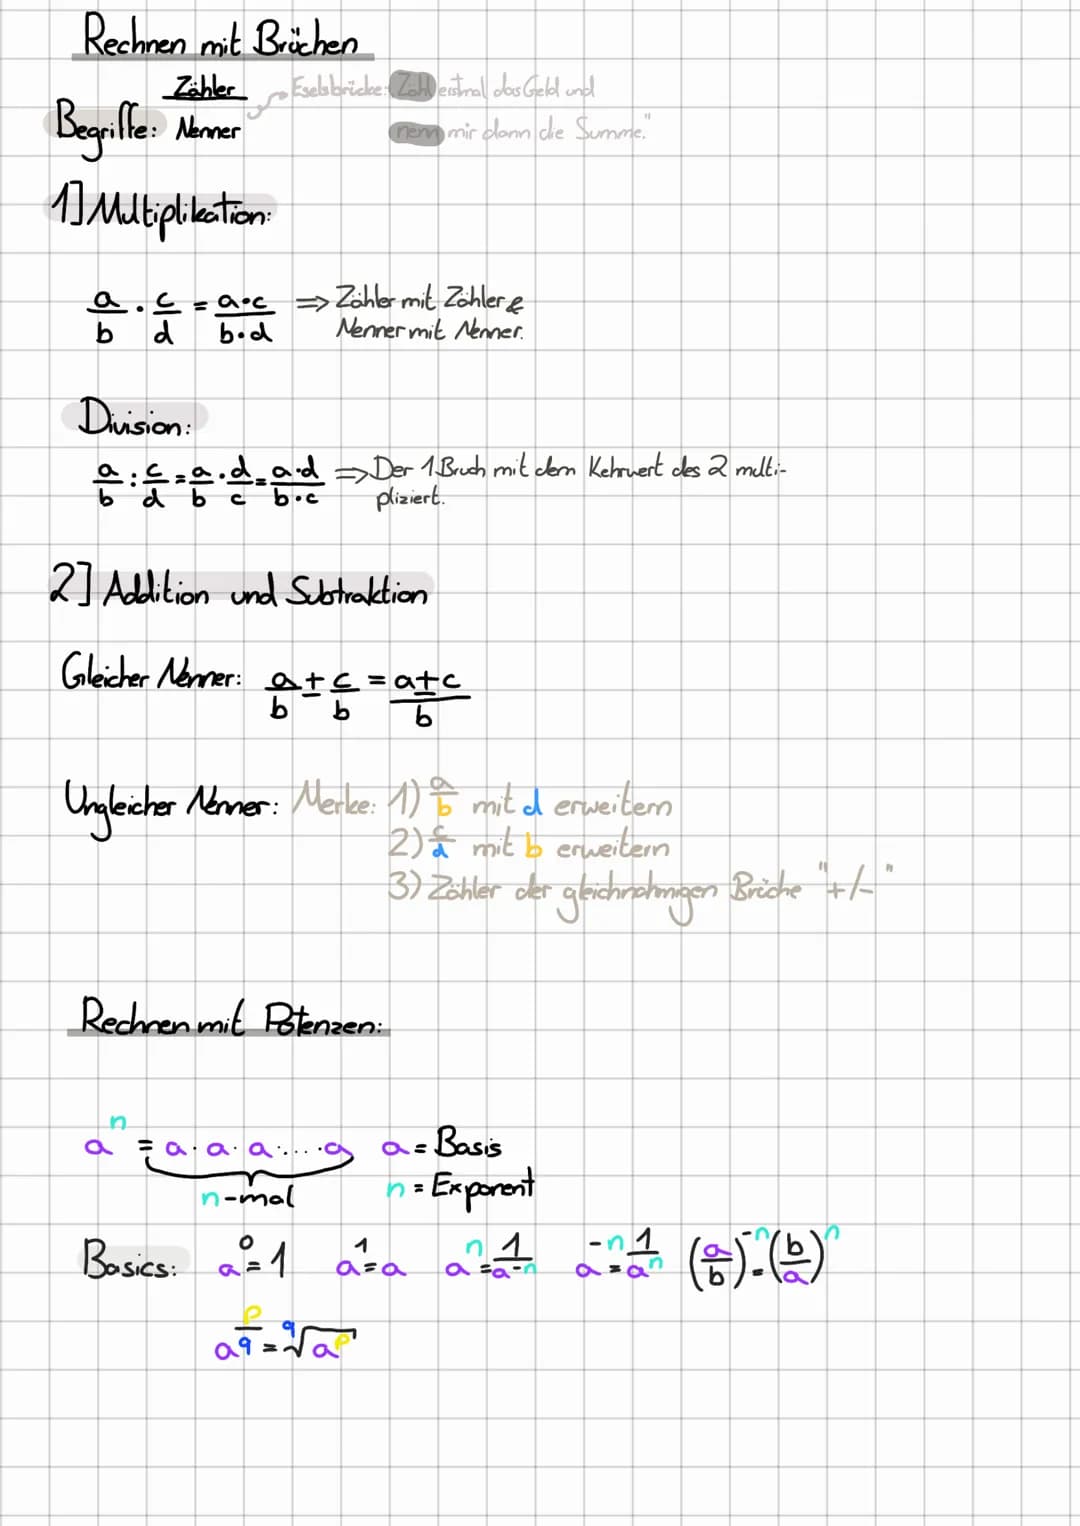 Rechnen mit Brüchen
Begriffe: Zähler/Nenner Eselsbrücke: Zähl erstmal das Geld und
nenn mir dann die Summe."
1] Multiplikation:
a/b · c/d = a·c/b·d ⇒ Zähler mit Zähler &
Nenner mit Nenner.
Division:
a/b : c/d = a/b · d/c = a·d/b·c ⇒ Der 1. Bruch mit dem Kehrwert des 2 multi-
pliziert.
2] Addition und Subtraktion
Gleicher Nenner: a/b ± c/b = a±c/b
Ungleicher Nenner: Merke: 1) a/b mit d erweitern
2) c/d mit b erweitern
3) Zähler der gleichnahmigen Brüche "+/-"
Rechnen mit Potenzen:
a^n = a·a·a·...·a a = Basis
n-mal n = Exponent
Basics: a^0 = 1 a^1 = a a^n = 1/a^-n a^-n = 1/a^n (a/b)^-n = (b/a)^n
a^(p/q) = q√a^p